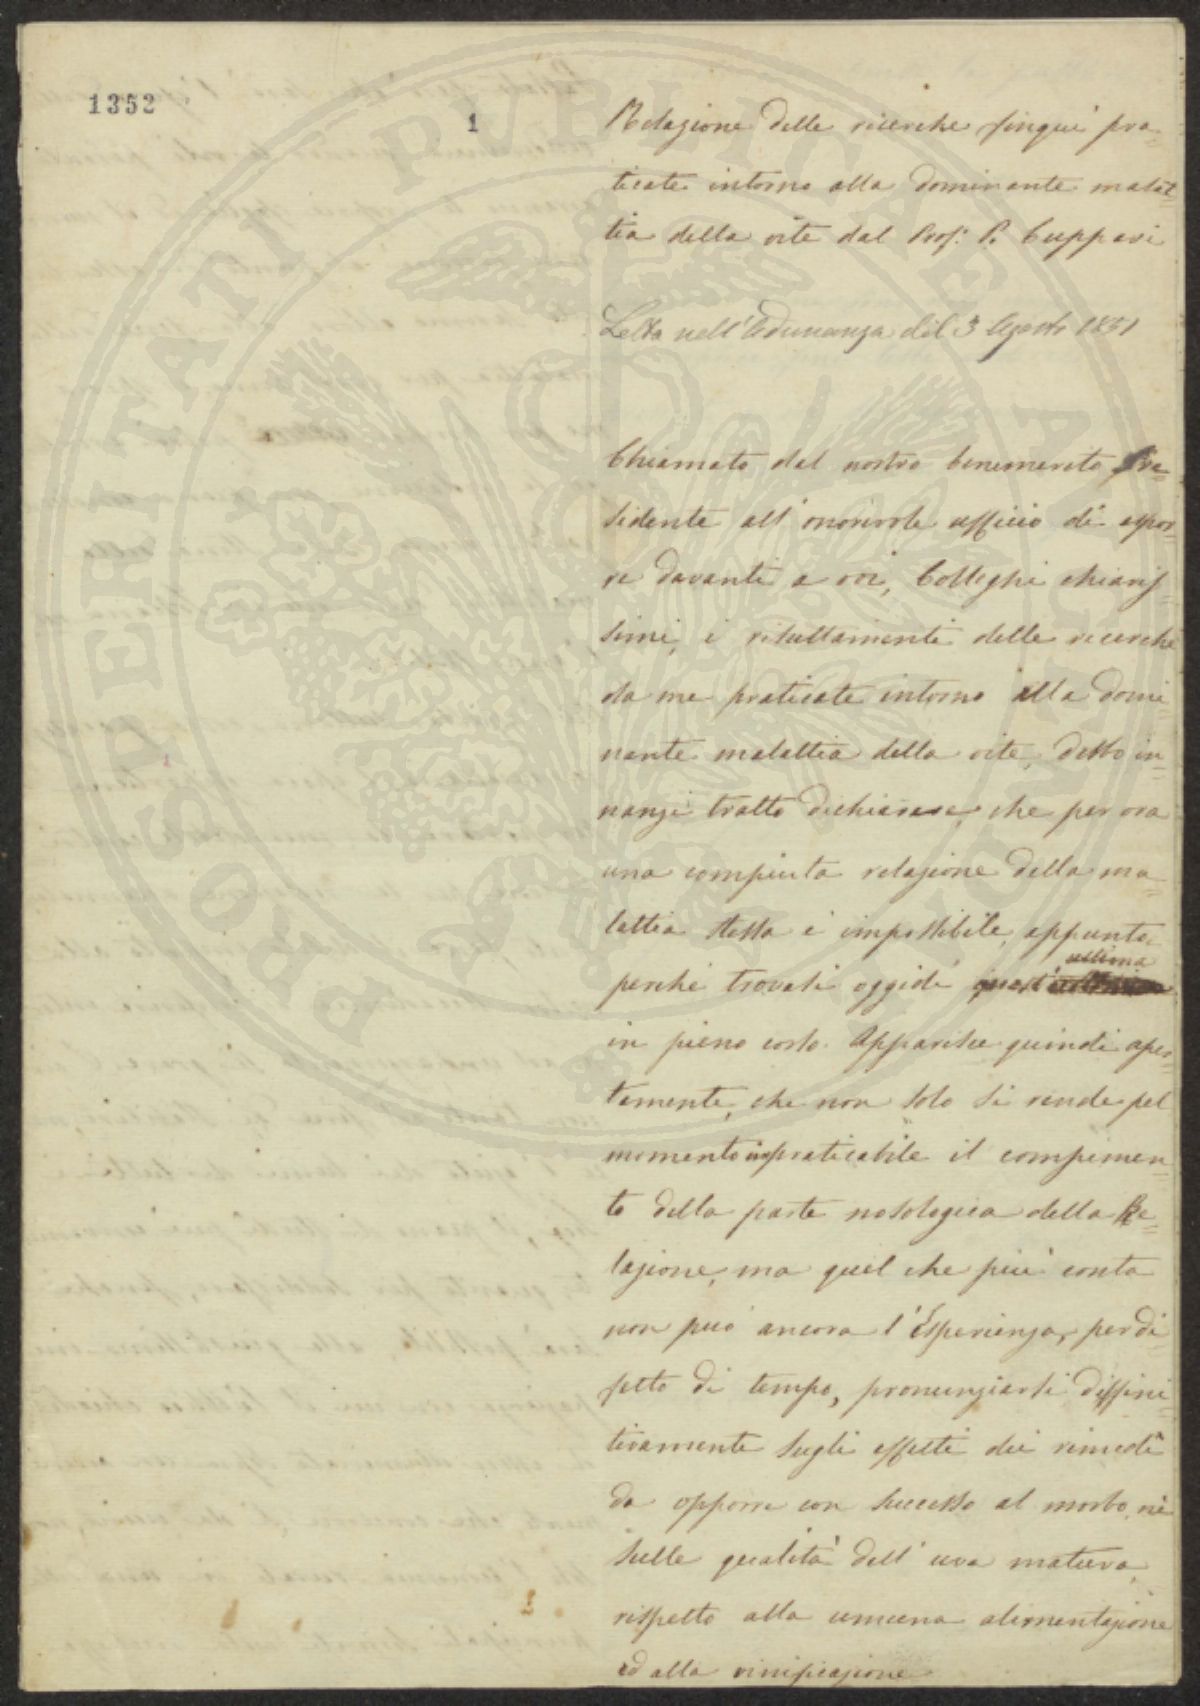 1352
1
Relazione delle ricerche finquì pra=
ticate intorno alla dominante malat=
tia della vite dal Prof: P. Cuppari
Letta nell'Adunanza del 3 Agosto 1851
Chiamato dal nostro benemerito Pre=
sidente all'onorevole ufficio di espor=
re davanti a voi, Colleghi chiaris=
simi, i risultamenti delle ricerche
da me praticate intorno alla domi=
nante malattia della vite, debbo in=
nanzi tratto dichiarare, che per ora
una compiuta relazione della ma=
lattia stessa è impossibile, appunto
perchè trovasi oggidì quest'ultima
in pieno corso. Apparisce quindi aper=
tamente, che non solo si rende pel
momento impraticabile il compimen=
to della parte nosologica della Re=
lazione, ma quel che più conta
non può ancora l'Esperienza, per di=
fetto di tempo, pronunziarsi diffini=
tivamente sugli effetti dei rimedi
da opporre con successo al morbo, nè
sulle qualità dell'uva matura,
rispetto alla umana alimentazione
ed alla vinificazione
PROSPERITATI PUBLICAE AUGENDAE